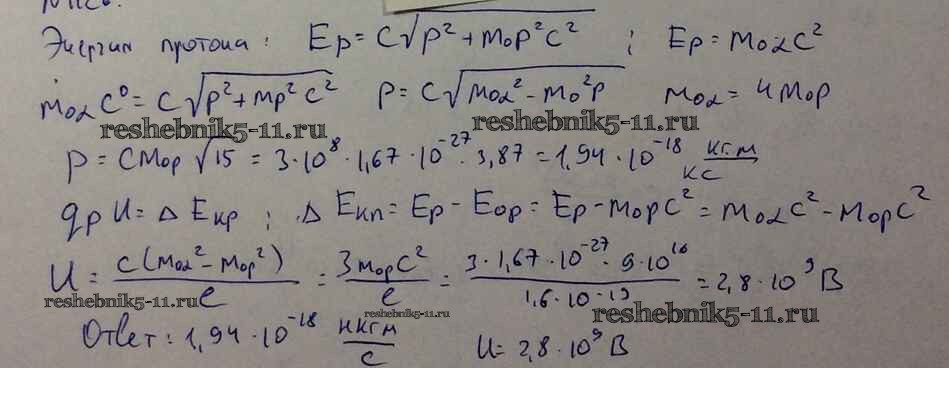 Энергия протона: Ep = C√(p² + m₀p²c²) ; Ep = m₀αC²
m₀αC⁰ = C√(p² + mp²c²) p = C√(m₀α² - m₀²p) m₀α = 4m₀p
reshebnik5-11.ru reshebnik5-11.ru
p = Cm₀p√15 = 3·10⁸·1,67·10⁻²⁷·3,87 = 1,94·10⁻¹⁸ кг.м/кс
qpU = ΔEкр ; ΔEкп = Ep - E₀p = Ep - m₀pc² = m₀αC² - m₀pC²
U = c(m₀α² - m₀p²)/e = 3m₀pC²/e = 3·1,67·10⁻²⁷·9·10¹⁶/1,6·10⁻¹⁹ = 2,8·10⁹ В
reshebnik5-11.ru reshebnik5-11.ru reshebnik5-11.ru
Ответ: 1,94·10⁻¹⁸ нкгм/с U = 2,8·10⁹ В